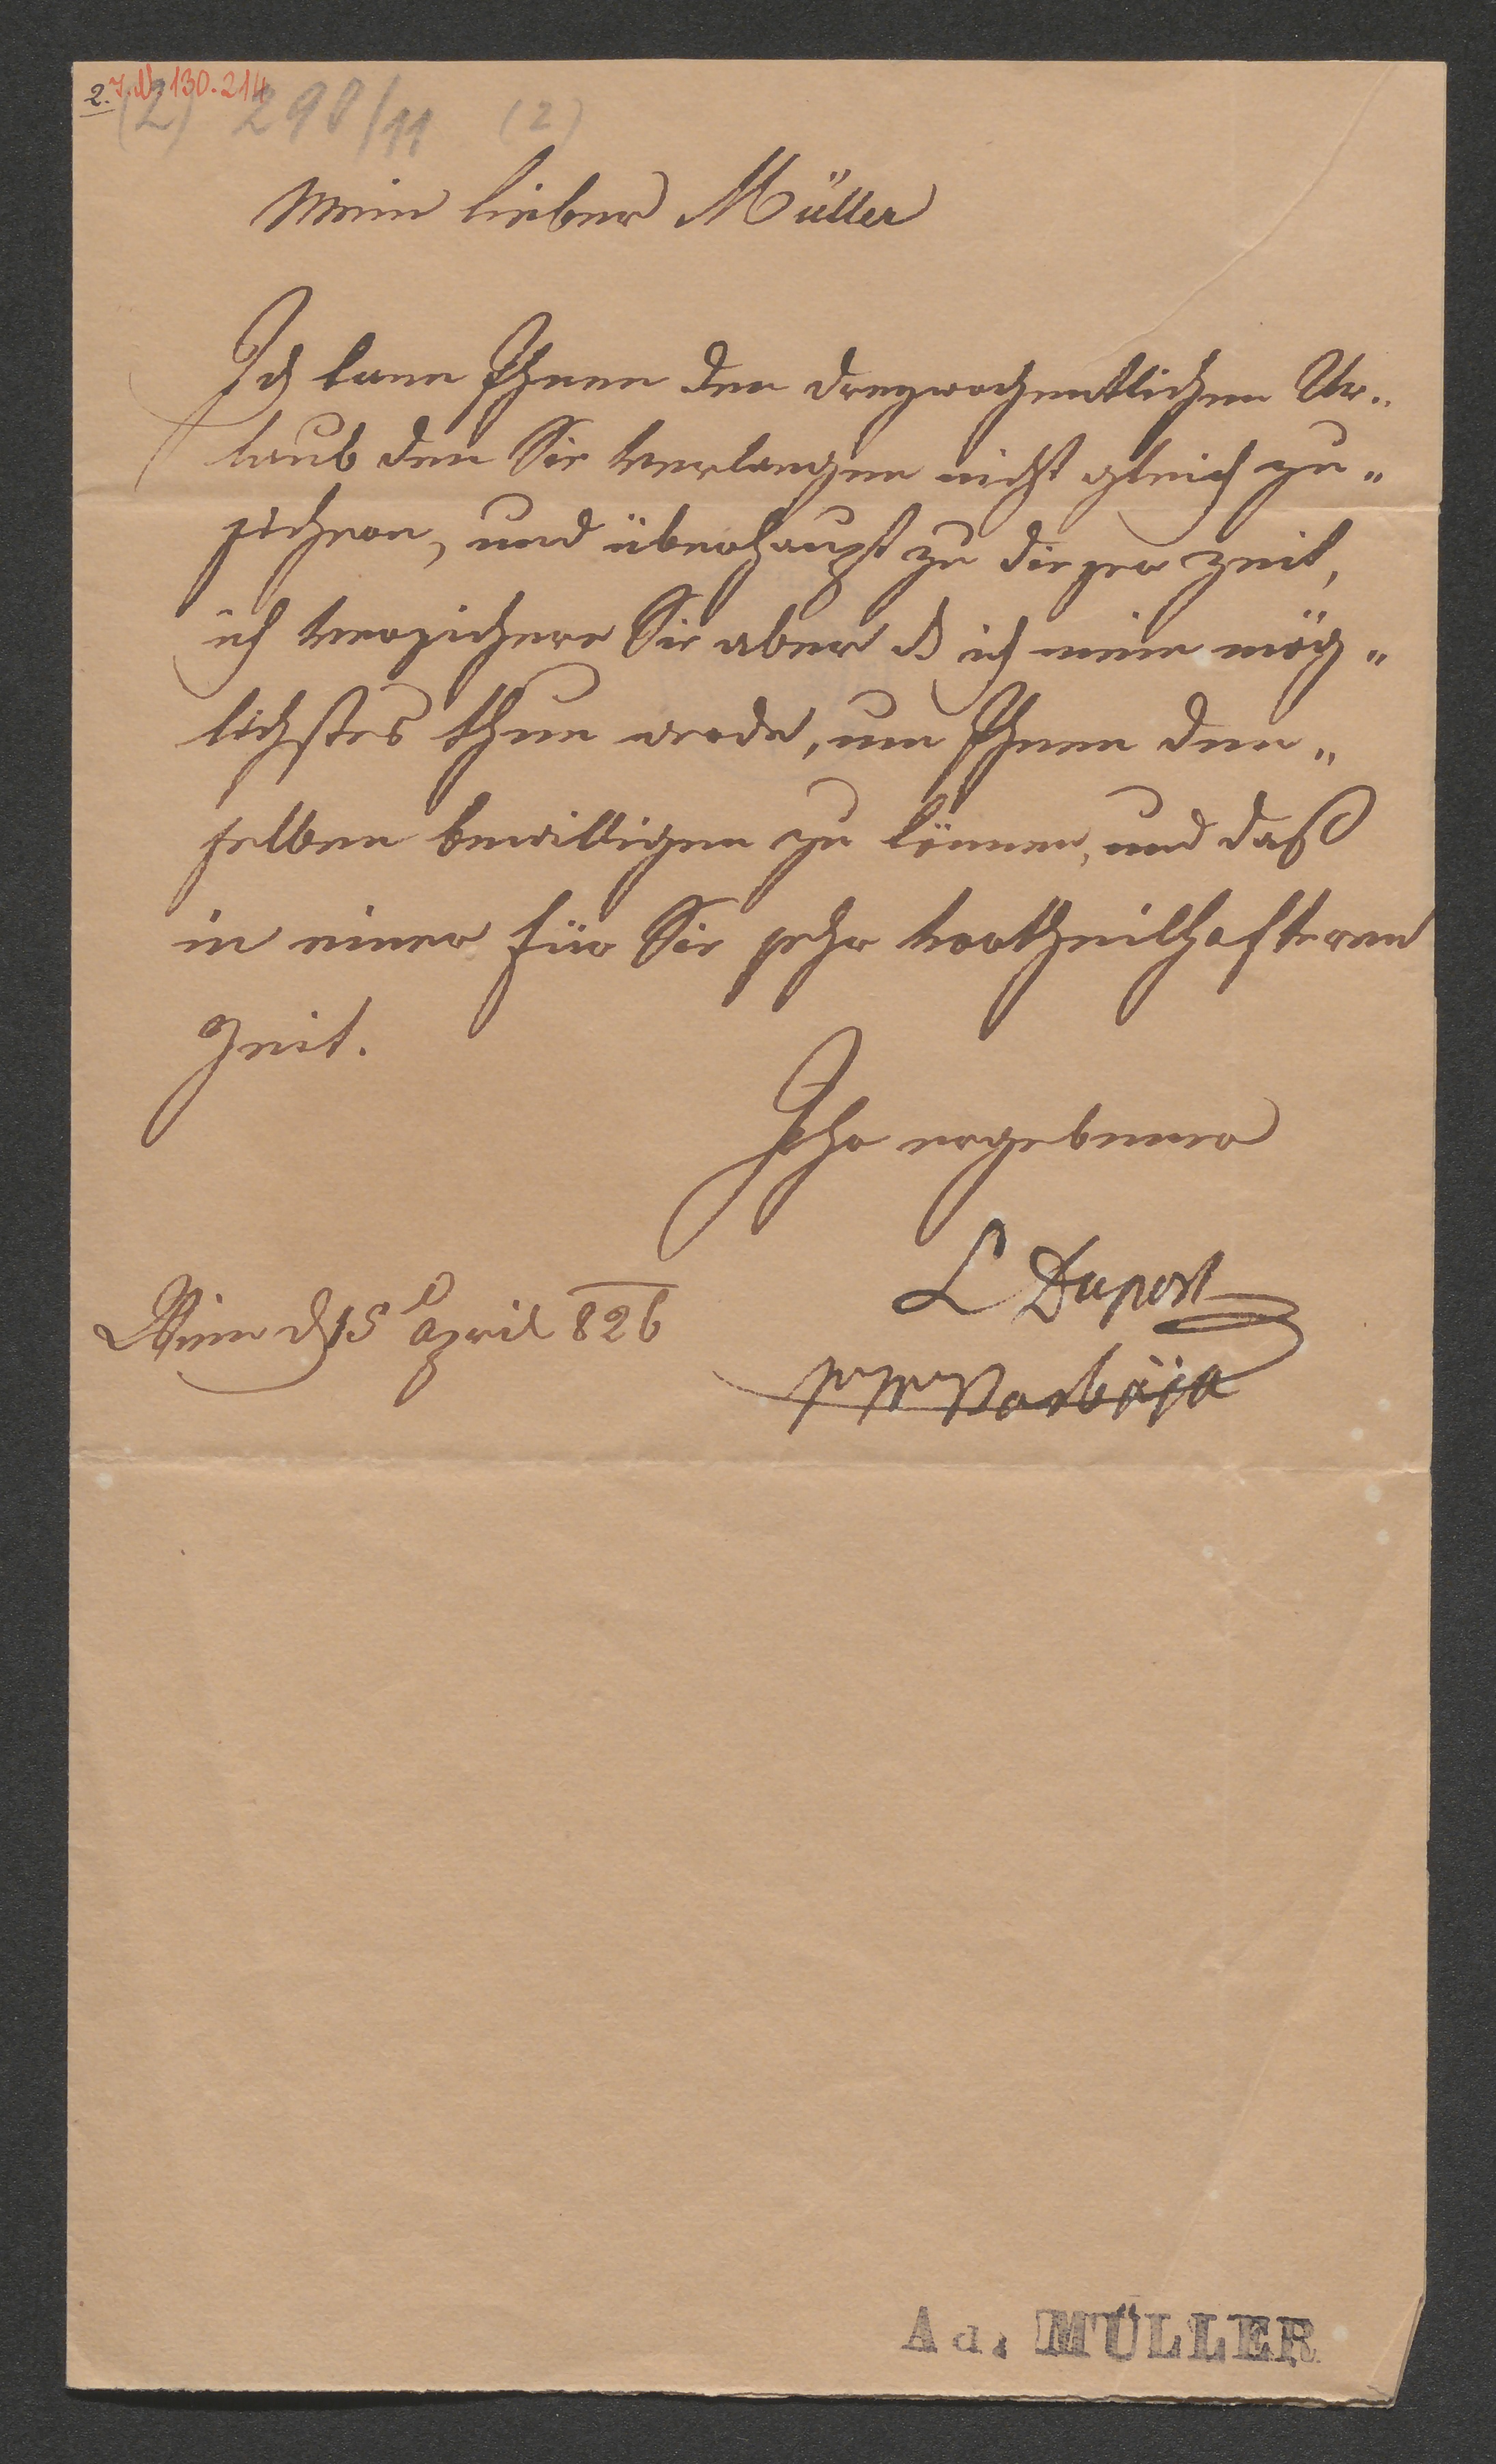 2. I.N. 130.214
(2) 298/11 (2)
Mein lieber Müller
Ich kann Ihnen den dreywochentlichen Ur„
laub den Sie verlangen nicht gleich zu„
sichern, und überhaupt zu dieser Zeit,
ich versichere Sie aber ich mein mög„
lichstes thun werde, um Ihnen den„
selben bewilligen zu können, und daß
in einer für Sie sehr vortheilhafteren
Zeit.
Ihr ergebener
L Duport
Wien d 15 April 826
Barbaja
Ad. MÜLLER